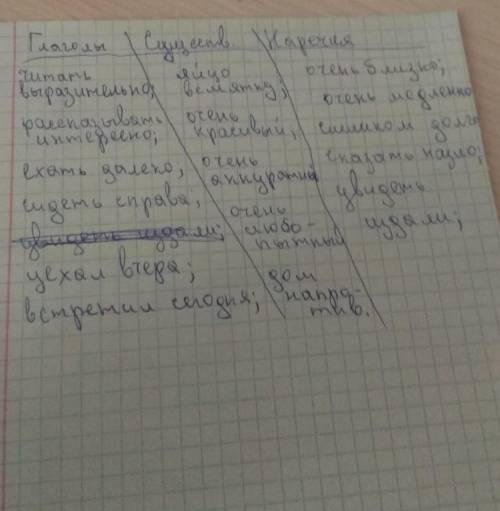 Глаголы Существ. Наречия
читать яйцо очень близко;
выразительно; всмятку; очень медленно
рассказывать очень
интересно; красивый; слишком долго
ехать далеко; очень сказать назло;
аккуратный
сидеть справа; увидеть
очень
увидеть издали; любо- издали;
пытный
уехал вчера;
дом
встретил сегодня; напро-
тив.